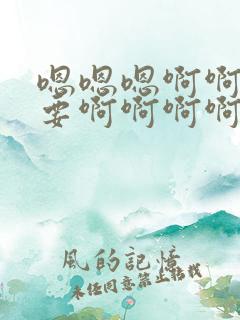 嗯嗯嗯啊啊
要啊啊啊啊
風的記憶
未经同意禁止转载